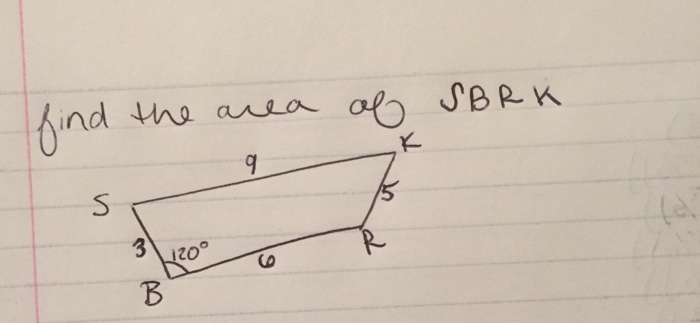 find the area of SBRK
9
K
S
5
3
120°
6
R
B